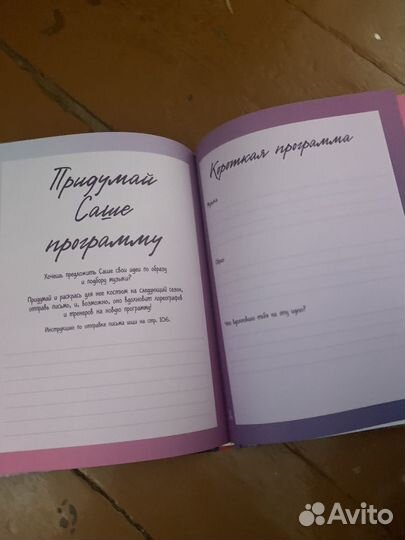 Придумай
Саше
программу
Хочешь предложить Саше свои идеи по образу
и подбору музыки?
Придумай и раскрась для нее костюм на следующий сезон,
отправь письмо, и, возможно, оно вдохновит хореографов
и тренеров на новую программу!
Инструкцию по отправке письма ищи на стр. 106.
Короткая программа
Музыка
Образ
Что вдохновило тебя на эту идею?
Avito